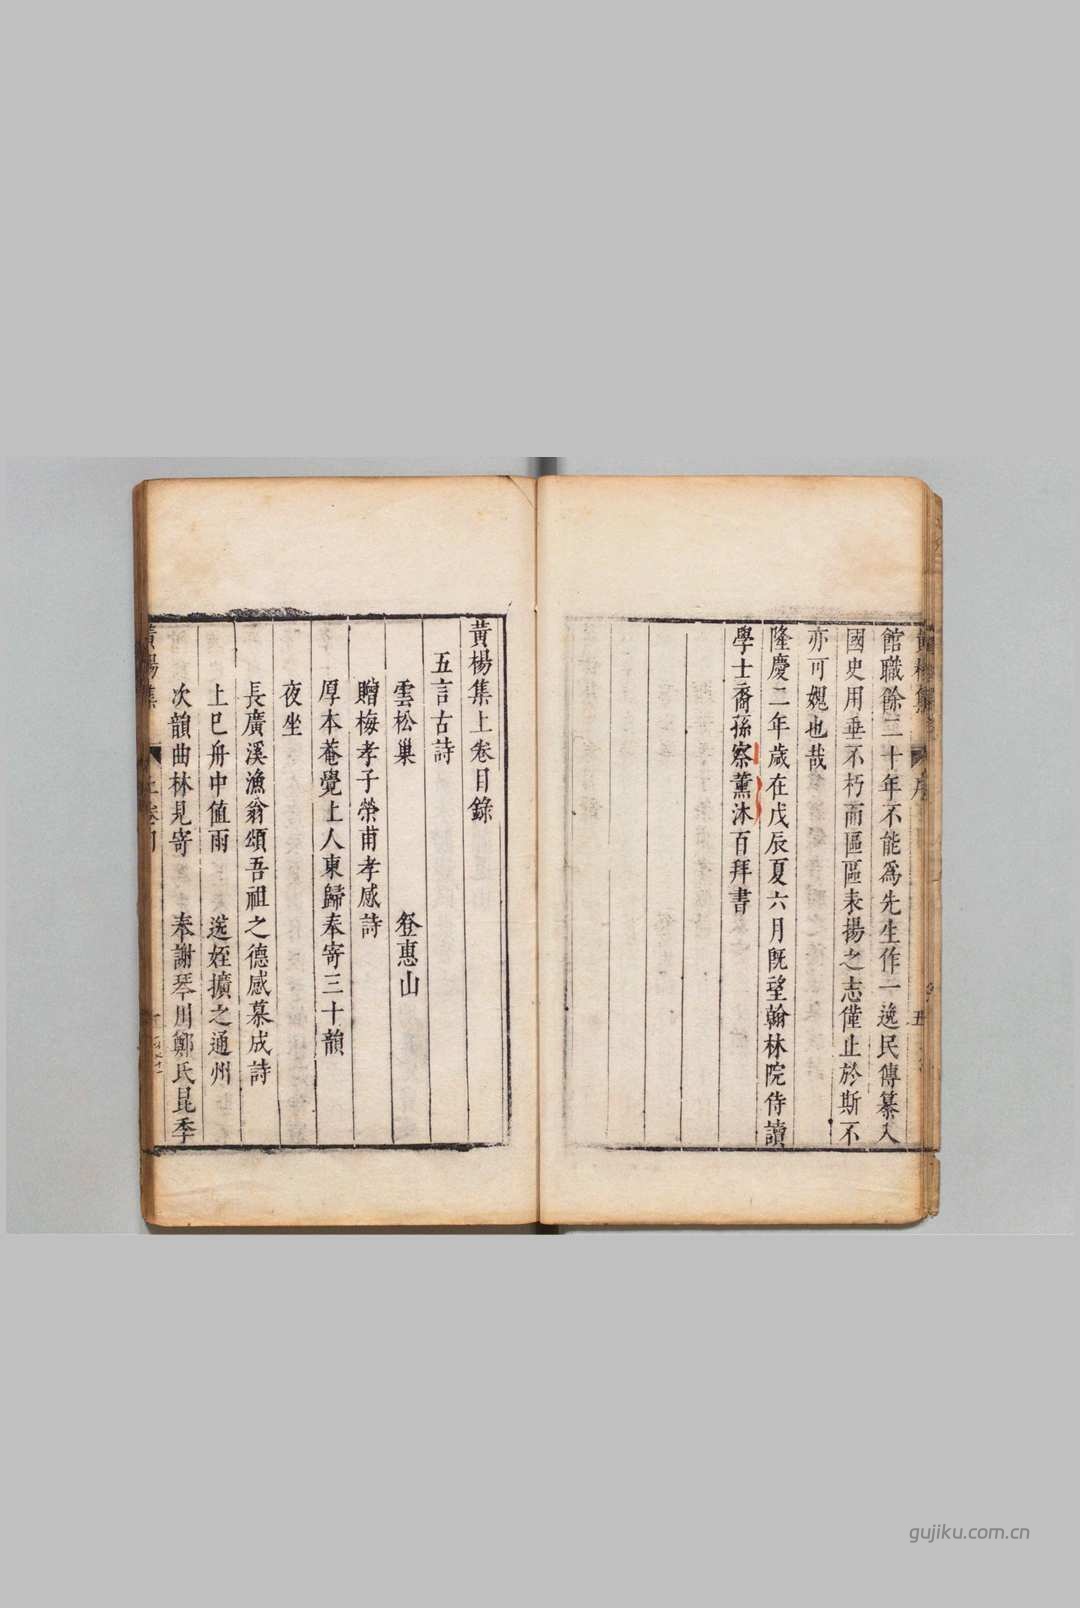 館職餘三十年不能爲先生作一逸民傳纂入
國史用垂不朽而區區表揚之志僅止於斯不
亦可媿也哉
隆慶二年歲在戊辰夏六月既望翰林院侍讀
學士裔孫察薰沐百拜書
黃楊集上卷目錄
五言古詩
雲松巢 登惠山
贈梅孝子榮甫孝感詩
厚本菴覺上人東歸奉寄三十韻
夜坐
長廣溪漁翁頌吾祖之德感慕成詩
上巳舟中值雨 送姪擴之通州
次韻曲林見寄 奉謝琴川鄭氏昆季
黃楊集
gujiku.com.cn